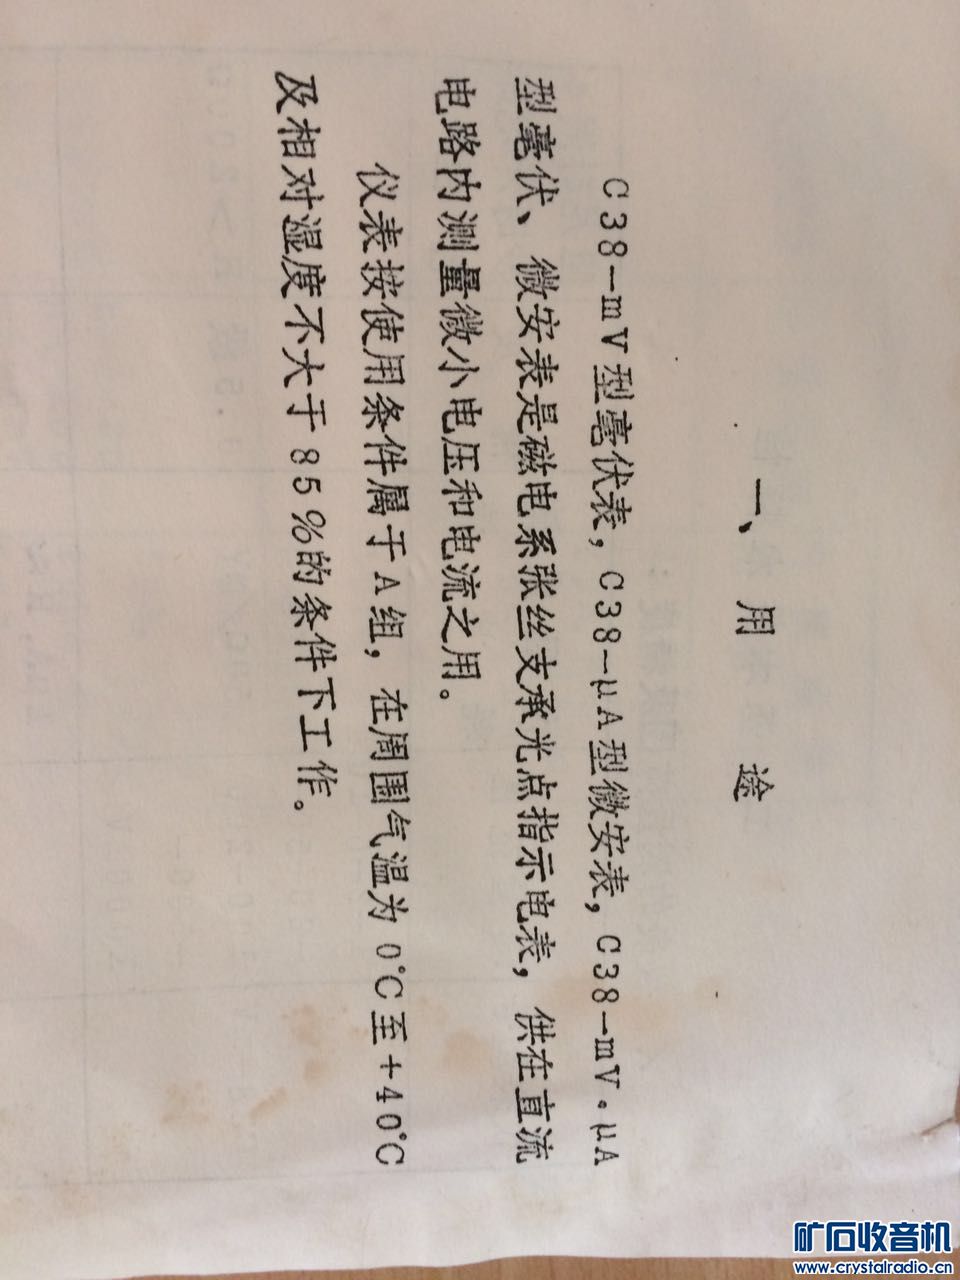 一、用途
C38－mV型毫伏表，C38－μA型微安表，C38－mV·μA
型毫伏、微安表是磁电系张丝支承光点指示电表，供在直流
电路内测量微小电压和电流之用。
仪表按使用条件属于A组，在周围气温为0℃至+40℃
及相对湿度不大于85%的条件下工作。
矿石收音机
www.crystalradio.cn